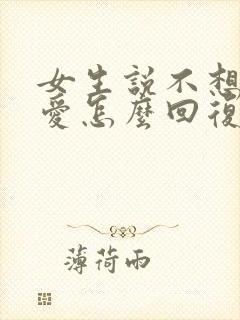 女生說不想
愛怎麼回復
薄荷雨